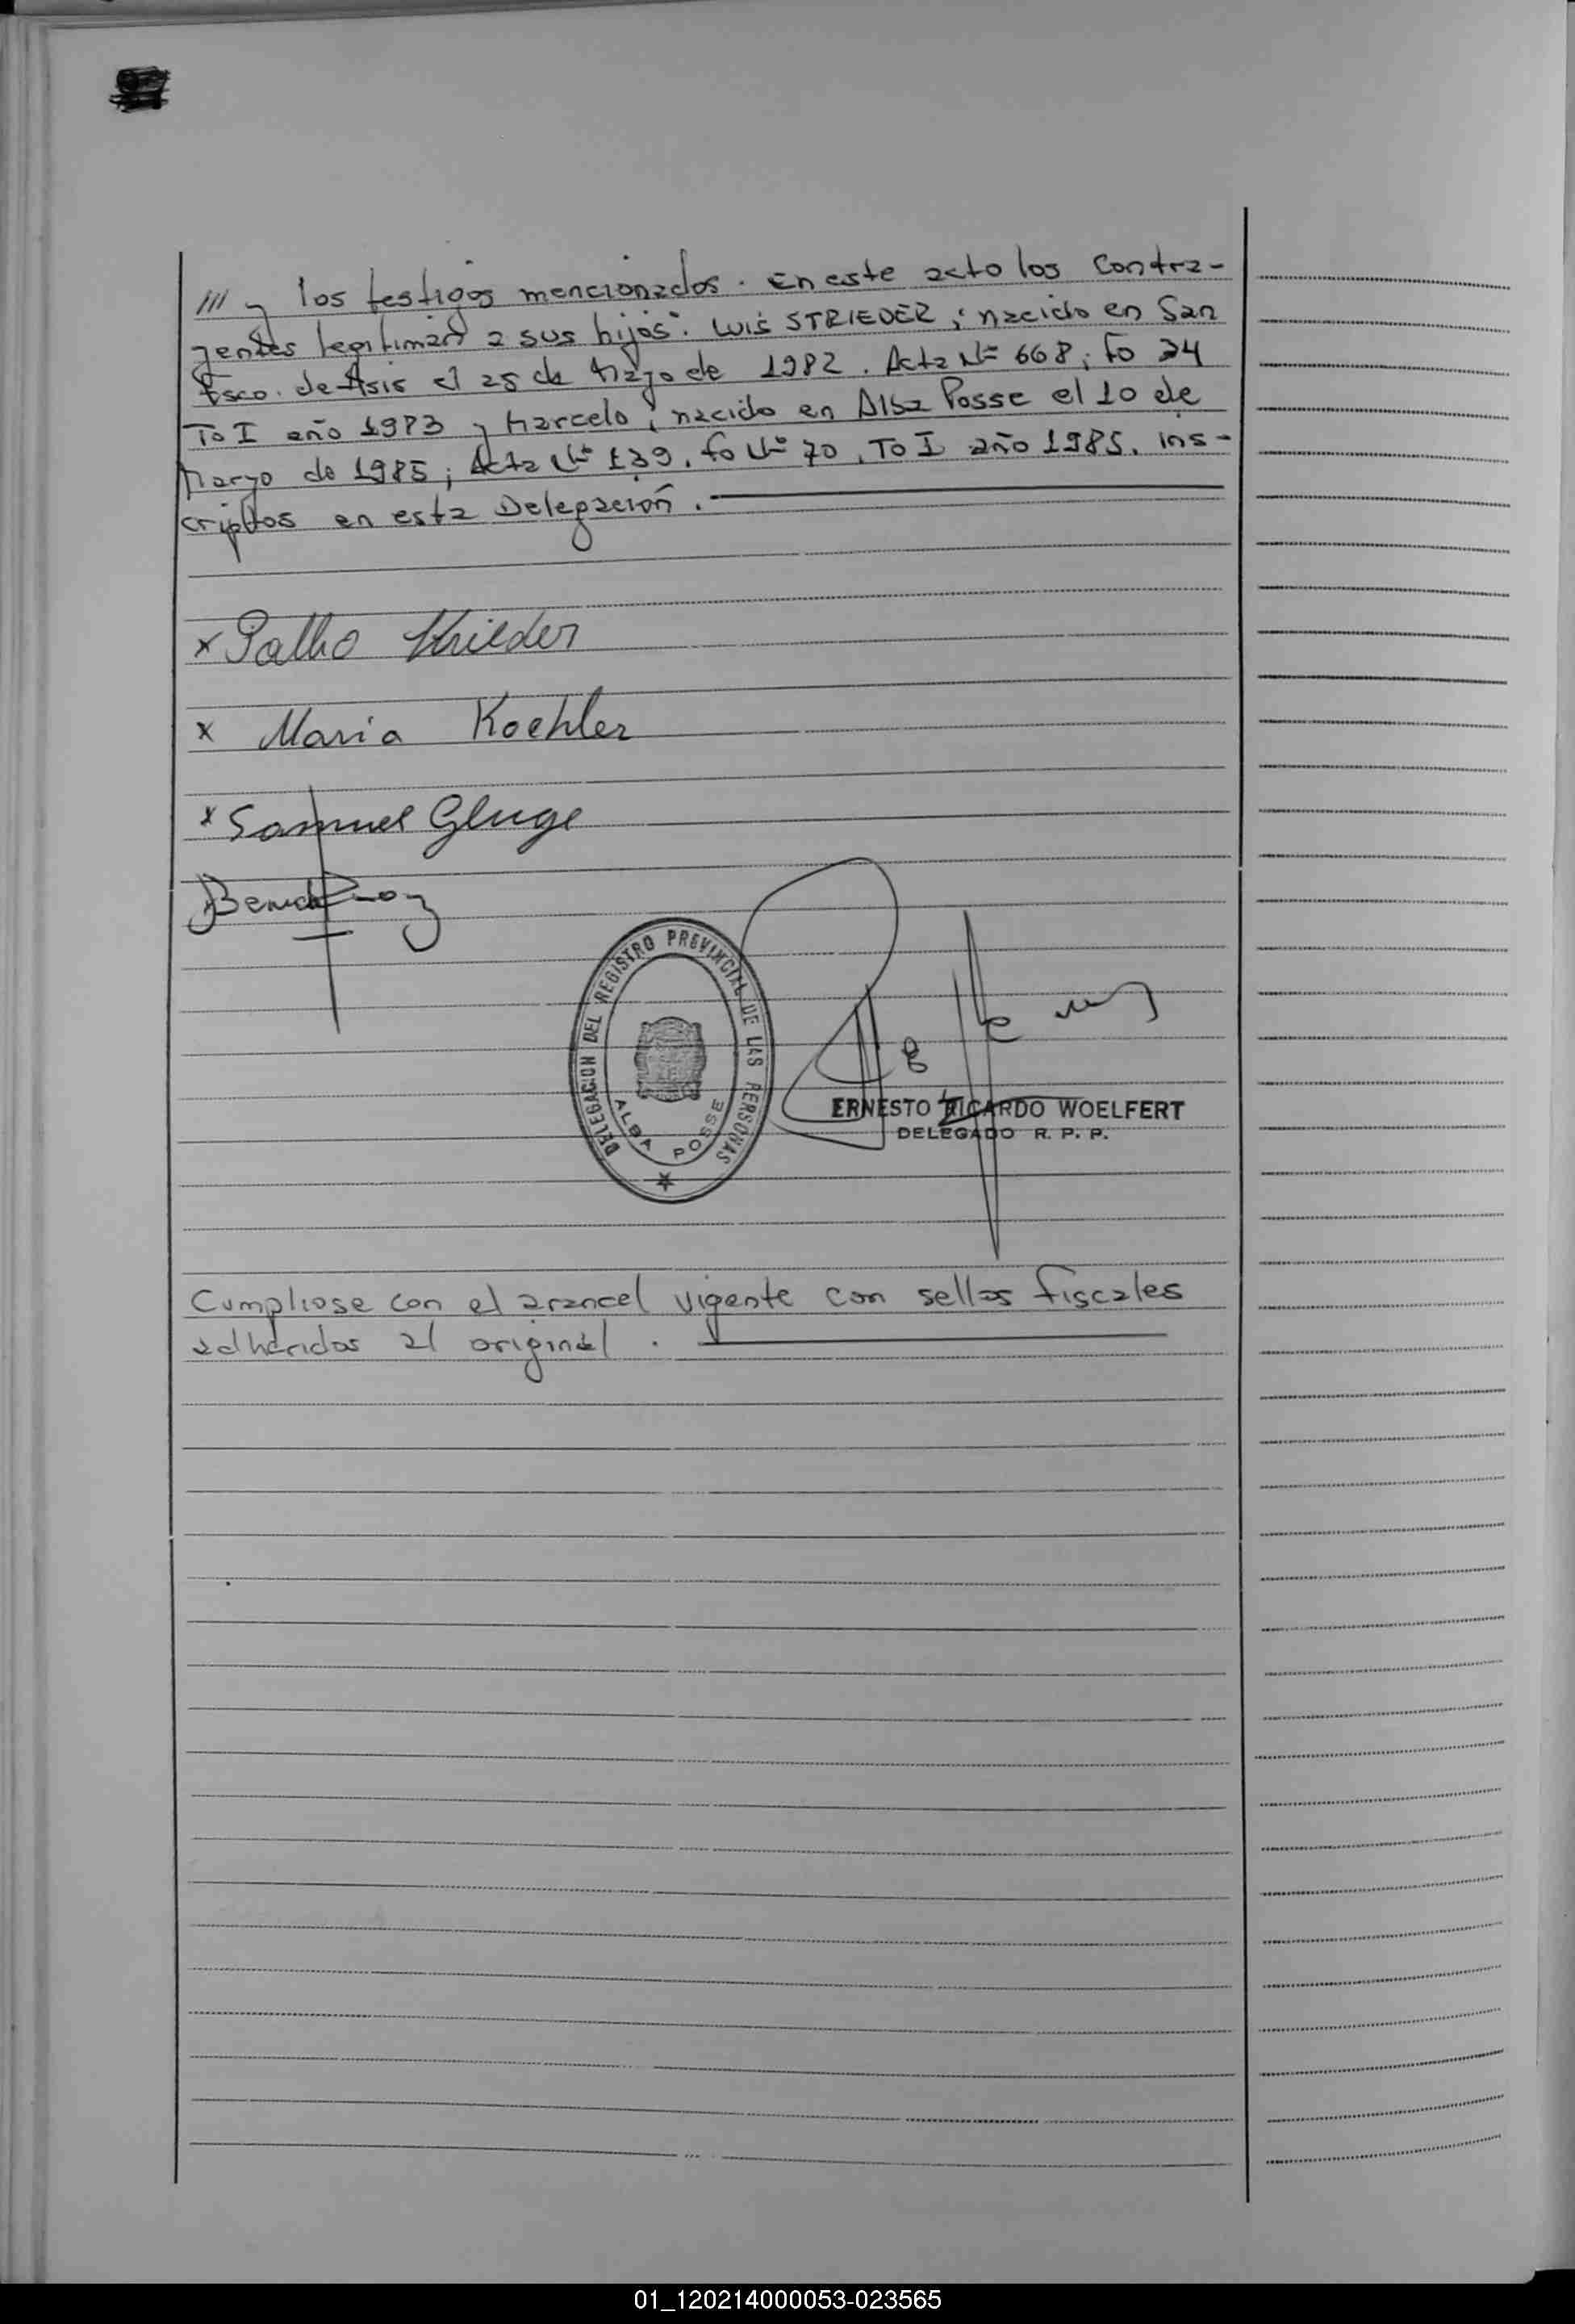 /// y los testigos mencionados. En este acto los Contra-
yentes legitiman a sus hijos: LUIS STRIEDER; nacido en San
Fsco. de Asis el 25 de Mayo de 1982. Acta Nº 668; Fo 34
To I año 1983 y Marcelo, nacido en Alba Posse el 10 de
Marzo de 1985; Acta Nº 139, fo Nº 70, To I año 1985. ins-
criptos en esta Delegación.
x Strieder
x Maria Koehler
x Samuel Gluge
DELEGACION DEL REGISTRO PROVINCIAL DE LAS PERSONAS
ALBA POSSE
ERNESTO RICARDO WOELFERT
DELEGADO R. P. P.
Cumpliose con el arancel vigente con sellos fiscales
adheridos al original.
01_120214000053-023565